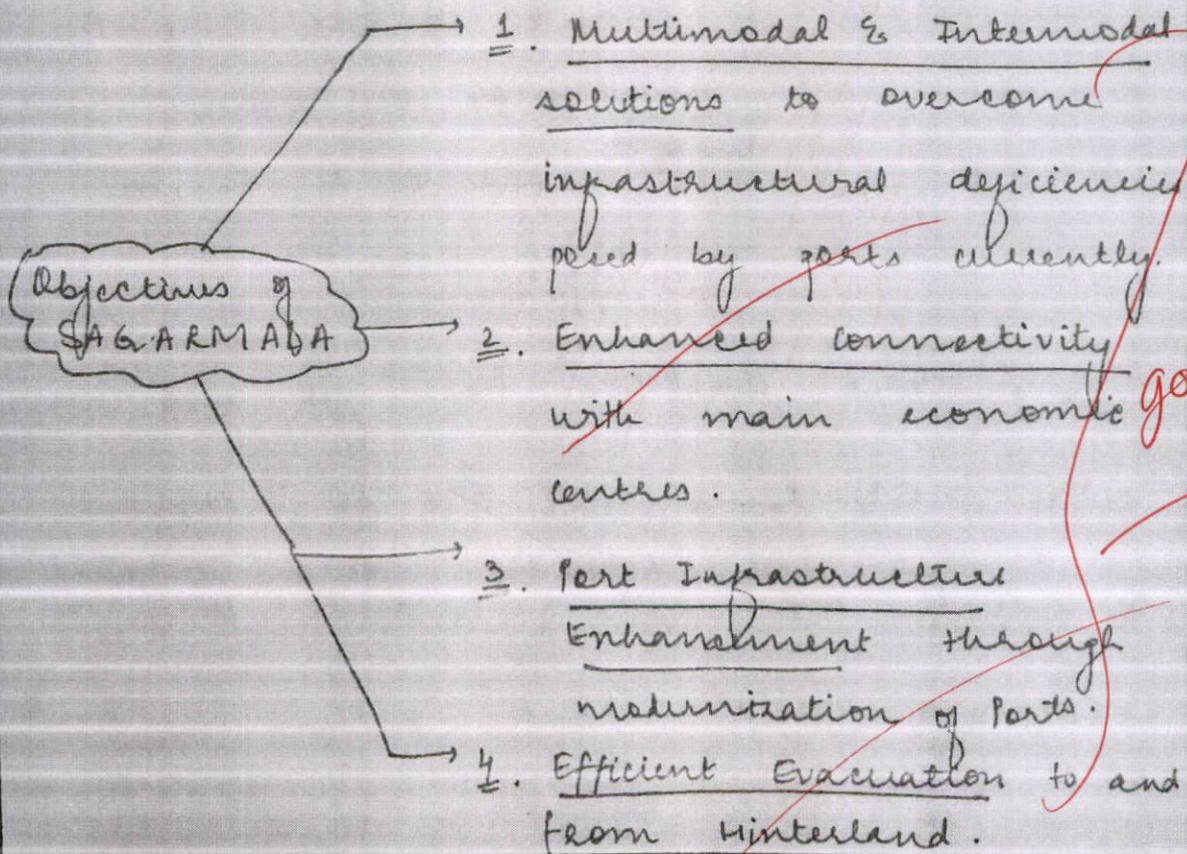 1. Multimodal & Intermodal
solutions to overcome
infrastructural deficiencies
posed by ports currently.
Objectives of
SAGARMALA
2. Enhanced connectivity
with main economic
centres.
go
3. Port Infrastructure
Enhancement through
modernization of Ports.
4. Efficient Evacuation to and
from Hinterland.